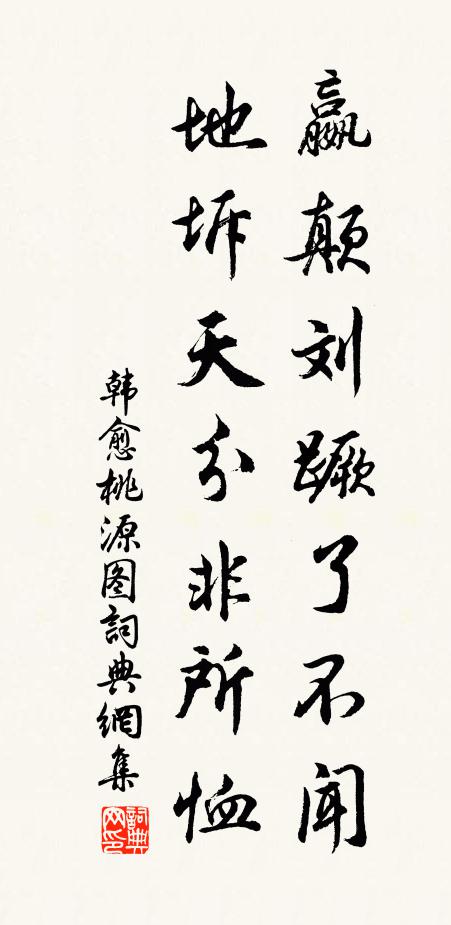 嬴颠刘蹶了不闻
地坼天分非所恤
韩愈桃源图词典網集
詞典网印